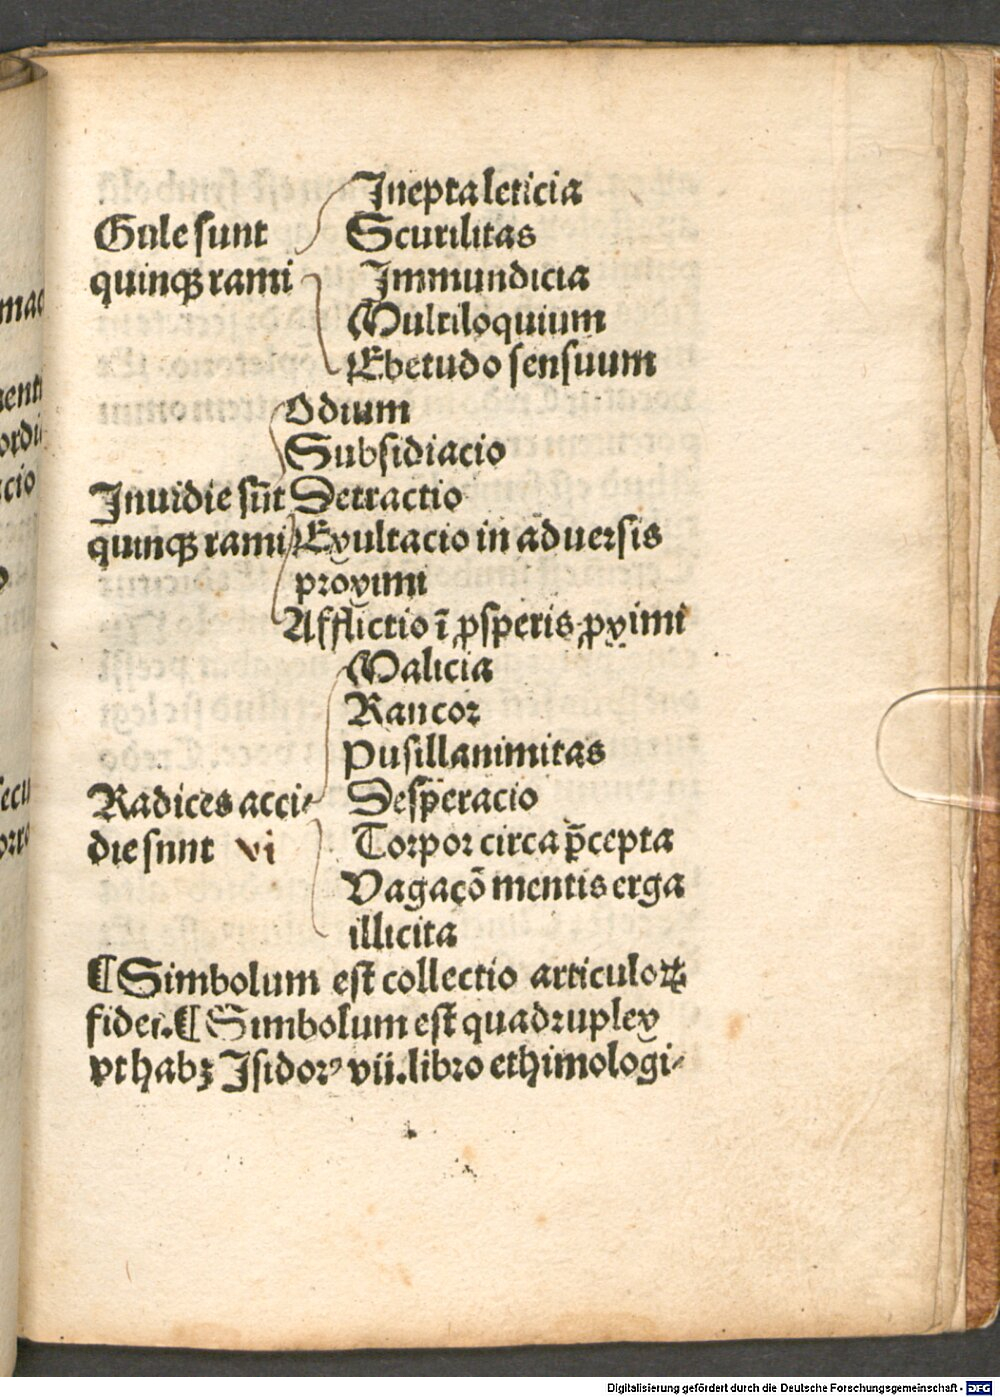 Inepta leticia
Gule sunt Scurilitas
quinqꝫ rami Immundicia
Multiloquium
Ebetudo sensuum
Odium
Subsidiacio
Inuidie sūt Detractio
quinqꝫ rami Exultacio in aduersis
proximi
Afflictio ī ꝓsperis ꝓximi
Malicia
Rancor
Pusillanimitas
Radices acci- Desperacio
die sunt vi Torpor circa p̄cepta
Vagacō mentis erga
illicita
¶ Simbolum est collectio articuloꝝ
fidei. ¶ Simbolum est quadruplex
vt habꝫ Isidorꝰ vii. libro ethimologi-
Digitalisierung gefördert durch die Deutsche Forschungsgemeinschaft - DFG